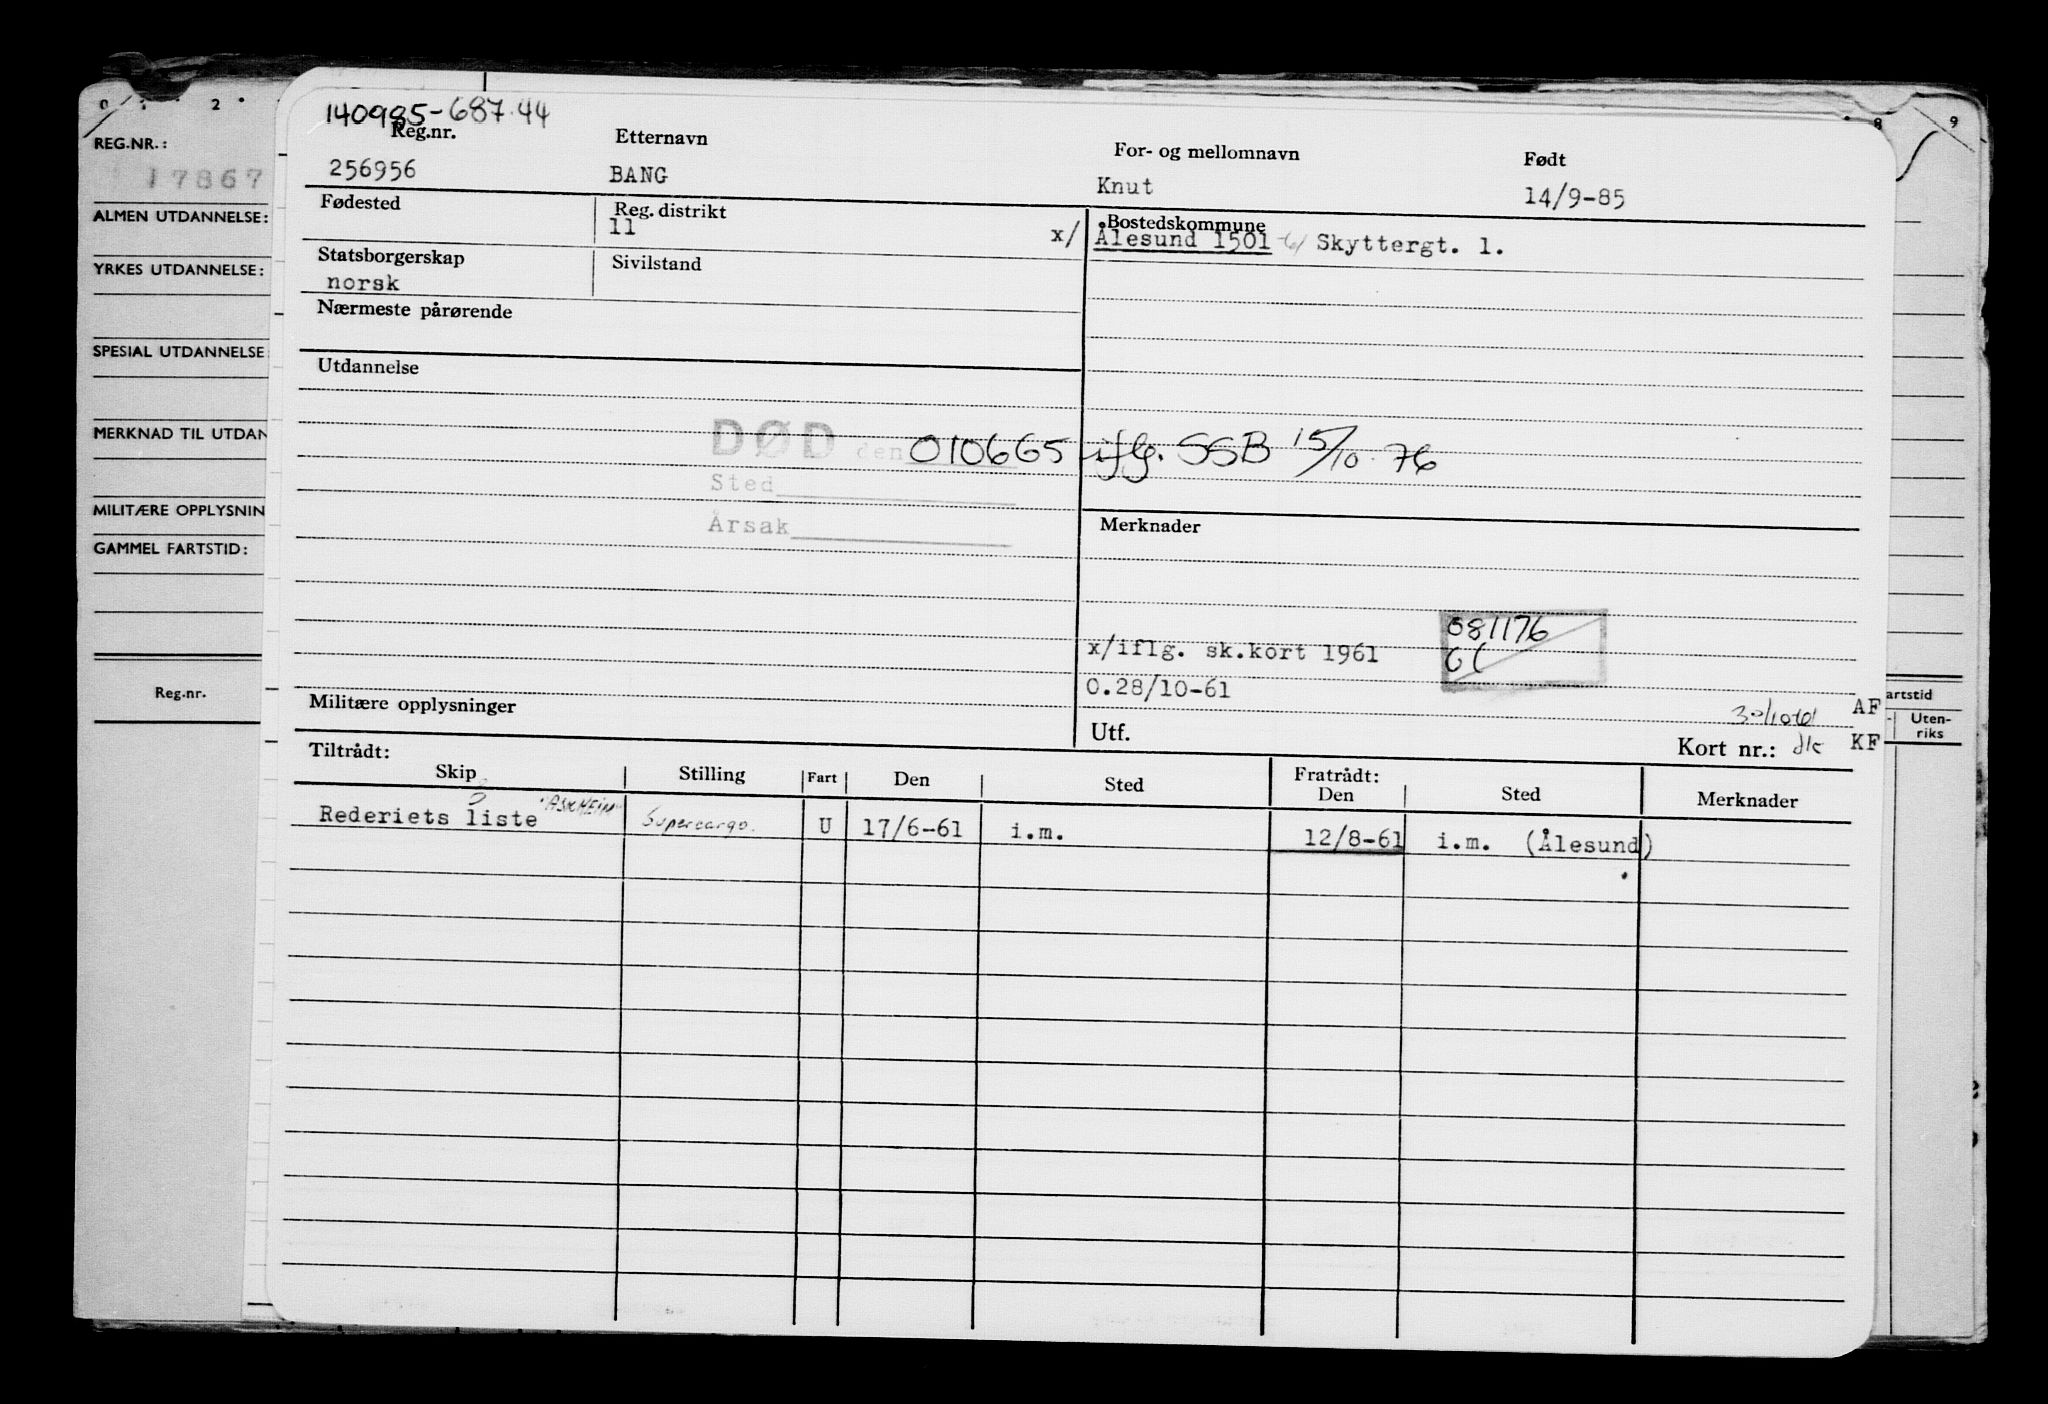 0 2 8 9
REG.NR.:
17867
ALMEN UTDANNELSE:
YRKES UTDANNELSE:
SPESIAL UTDANNELSE
MERKNAD TIL UTDAN
MILITÆRE OPPLYSNIN
GAMMEL FARTSTID:
Reg.nr.
140985-687.44
Reg.nr. Etternavn For- og mellomnavn Født
256956 BANG Knut 14/9-85
Fødested Reg. distrikt Bostedskommune
11 x/ Ålesund 1501 Skyttergt. 1.
Statsborgerskap Sivilstand
norsk
Nærmeste pårørende
Utdannelse
DØD den 010665 iflg. SSB 15/10.76
Sted
Årsak
Merknader
081176
x/iflg. sk.kort 1961
0.28/10-61
Militære opplysninger
Utf.
30/10-61 AF
Kort nr.: KF
artstid
Uten-
riks
Tiltrådt: Fratrådt:
Skip Stilling Fart Den Sted Den Sted Merknader
Rederiets liste "ASKHEIM" Supercargo. U 17/6-61 i.m. 12/8-61 i.m. (Ålesund)